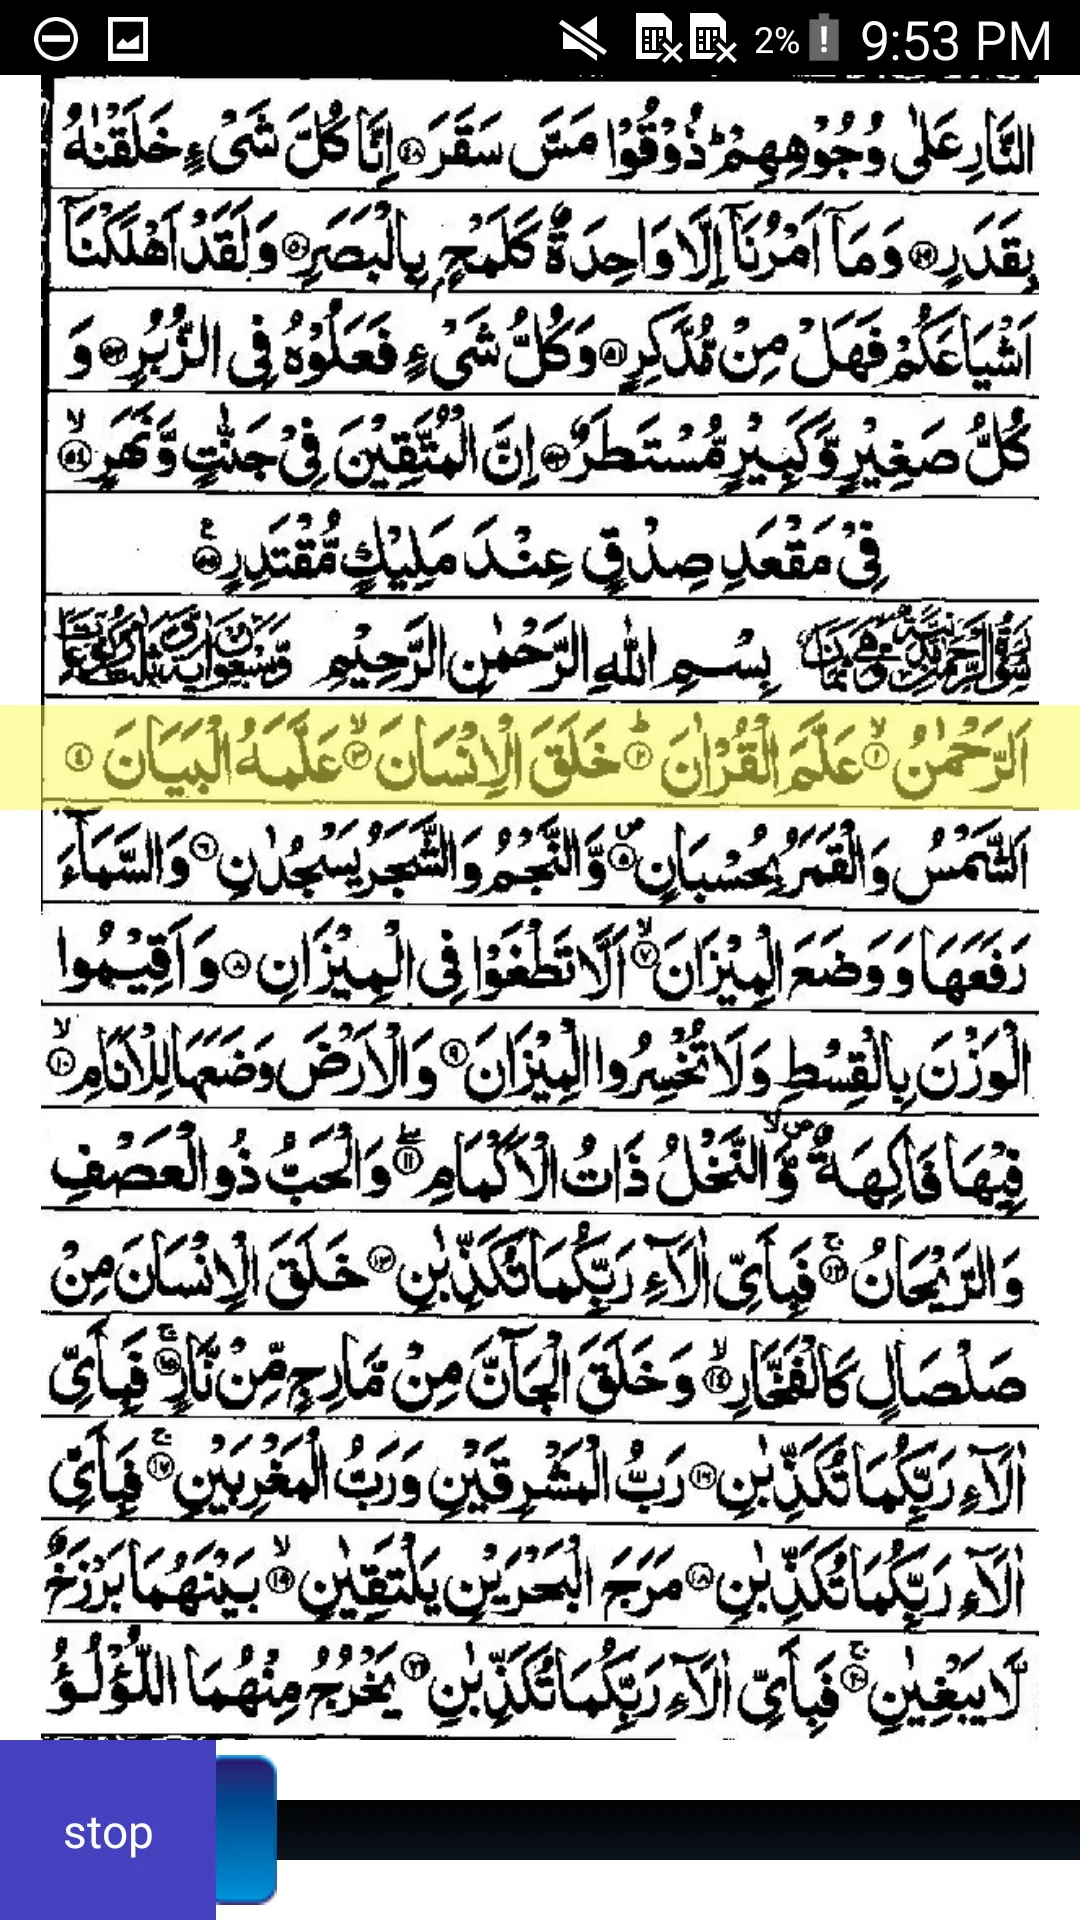 2% 9:53 PM
النَّارِ عَلٰى وُجُوْهِهِمْ ؕ ذُوْقُوْا مَسَّ سَقَرَ ﴿۴۸﴾ اِنَّا كُلَّ شَیْءٍ خَلَقْنٰهُ
بِقَدَرٍ ﴿۴۹﴾ وَمَاۤ اَمْرُنَاۤ اِلَّا وَاحِدَةٌ كَلَمْحٍۭ بِالْبَصَرِ ﴿۵۰﴾ وَلَقَدْ اَهْلَكْنَاۤ
اَشْیَاعَكُمْ فَهَلْ مِنْ مُّدَّكِرٍ ﴿۵۱﴾ وَكُلُّ شَیْءٍ فَعَلُوْهُ فِی الزُّبُرِ ﴿۵۲﴾ وَ
كُلُّ صَغِیْرٍ وَّكَبِیْرٍ مُّسْتَطَرٌ ﴿۵۳﴾ اِنَّ الْمُتَّقِیْنَ فِیْ جَنّٰتٍ وَّنَهَرٍ ﴿۵۴﴾ ۙ
فِیْ مَقْعَدِ صِدْقٍ عِنْدَ مَلِیْكٍ مُّقْتَدِرٍ ﴿۵۵﴾ ع
بِسْمِ اللهِ الرَّحْمٰنِ الرَّحِیْمِ
اَلرَّحْمٰنُ ﴿۱﴾ ۙ عَلَّمَ الْقُرْاٰنَ ﴿۲﴾ ؕ خَلَقَ الْاِنْسَانَ ﴿۳﴾ ۙ عَلَّمَهُ الْبَیَانَ ﴿۴﴾
اَلشَّمْسُ وَالْقَمَرُ بِحُسْبَانٍ ﴿۵﴾ ۪ وَّالنَّجْمُ وَالشَّجَرُ یَسْجُدٰنِ ﴿۶﴾ وَالسَّمَآءَ
رَفَعَهَا وَوَضَعَ الْمِیْزَانَ ﴿۷﴾ ۙ اَلَّا تَطْغَوْا فِی الْمِیْزَانِ ﴿۸﴾ وَاَقِیْمُوا
الْوَزْنَ بِالْقِسْطِ وَلَا تُخْسِرُوا الْمِیْزَانَ ﴿۹﴾ وَالْاَرْضَ وَضَعَهَا لِلْاَنَامِ ﴿۱۰﴾ ۙ
فِیْهَا فَاكِهَةٌ ۪ۙ وَّالنَّخْلُ ذَاتُ الْاَكْمَامِ ﴿۱۱﴾ ۖ وَالْحَبُّ ذُو الْعَصْفِ
وَالرَّیْحَانُ ﴿۱۲﴾ ۚ فَبِاَیِّ اٰلَآءِ رَبِّكُمَا تُكَذِّبٰنِ ﴿۱۳﴾ خَلَقَ الْاِنْسَانَ مِنْ
صَلْصَالٍ كَالْفَخَّارِ ﴿۱۴﴾ ۙ وَخَلَقَ الْجَآنَّ مِنْ مَّارِجٍ مِّنْ نَّارٍ ﴿۱۵﴾ ۚ فَبِاَیِّ
اٰلَآءِ رَبِّكُمَا تُكَذِّبٰنِ ﴿۱۶﴾ رَبُّ الْمَشْرِقَیْنِ وَرَبُّ الْمَغْرِبَیْنِ ﴿۱۷﴾ ۚ فَبِاَیِّ
اٰلَآءِ رَبِّكُمَا تُكَذِّبٰنِ ﴿۱۸﴾ مَرَجَ الْبَحْرَیْنِ یَلْتَقِیٰنِ ﴿۱۹﴾ ۙ بَیْنَهُمَا بَرْزَخٌ
لَّا یَبْغِیٰنِ ﴿۲۰﴾ ۚ فَبِاَیِّ اٰلَآءِ رَبِّكُمَا تُكَذِّبٰنِ ﴿۲۱﴾ یَخْرُجُ مِنْهُمَا اللُّؤْلُؤُ
stop